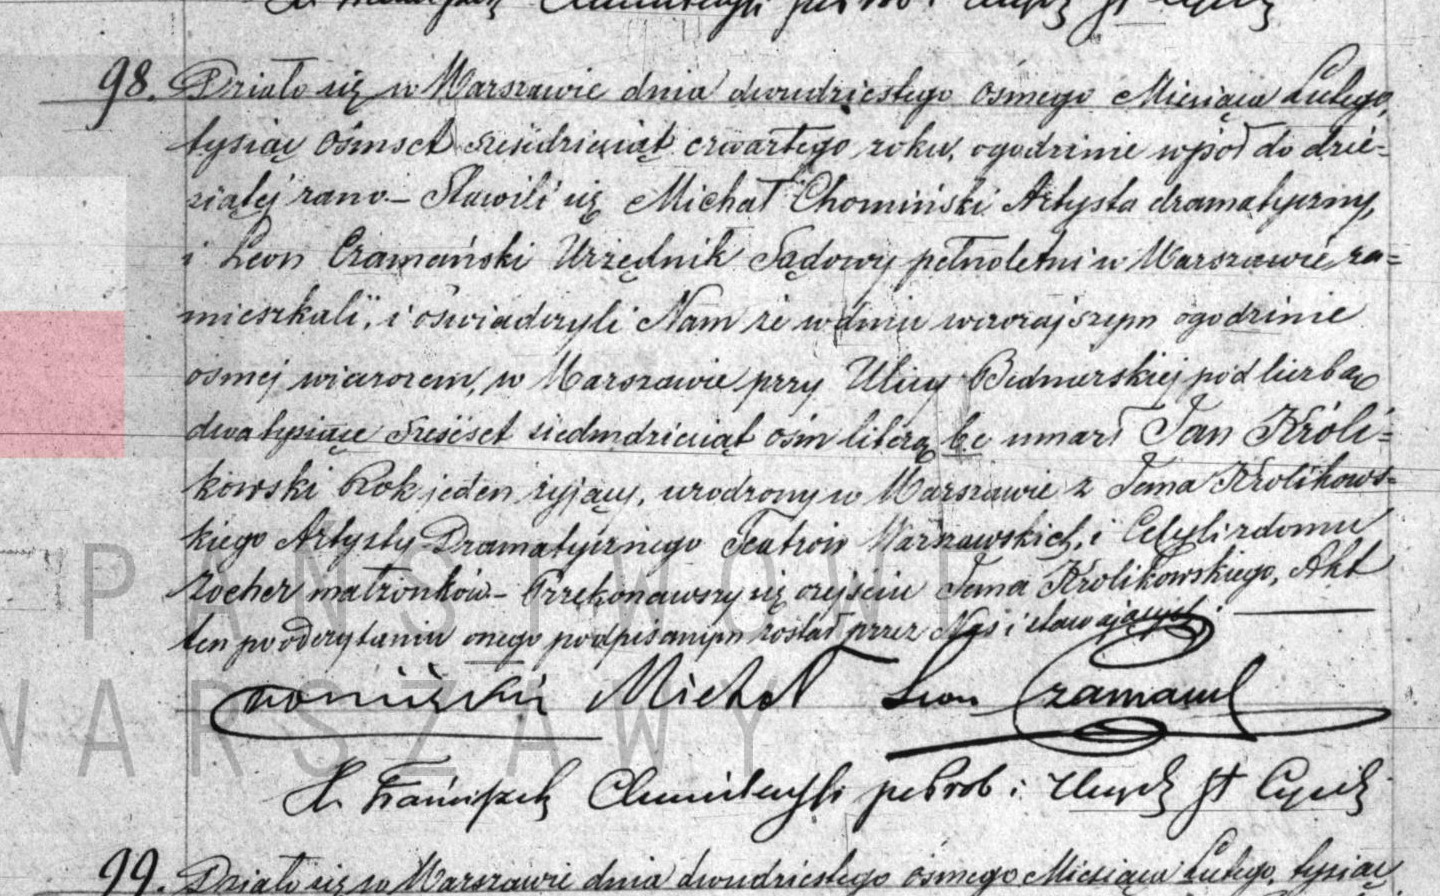 98. Działo się w Warszawie dnia dwudziestego ósmego Miesiąca Lutego,
tysiąc ósmset sześćdziesiąt czwartego roku, ogodzinie wpół do dzie=
siątej rano. – Stawili się Michał Chomiński Artysta dramatyczny,
i Leon Czamański Urzędnik Sądowy pełnoletni w Warszawie za=
mieszkali, i oświadczyli Nam że wdniu wczorajszym ogodzinie
ósmej wieczorem, w Warszawie przy Ulicy Bednarskiej pod liczbą
dwatysiące sześćset siedmdziesiąt ośm literą be umarł Jan Króli=
kowski Rok jeden żyjący, urodzony w Warszawie z Jana Królikows=
kiego Artysty Dramatycznego Teatrów Warszawskich, i Cecylii zdomu
Zocher małżonków – Przekonawszy się ozejściu Jana Królikowskiego, Akt
ten po odczytaniu onego podpisanym został przez Nas i stawających.
Chomiński Michał Leon Czamański
X. Franciszek
99. Działo się w Warszawie dnia dwudziestego ósmego Miesiąca Lutego, tysiąc
PAŃSTWOWE
WARSZAWY